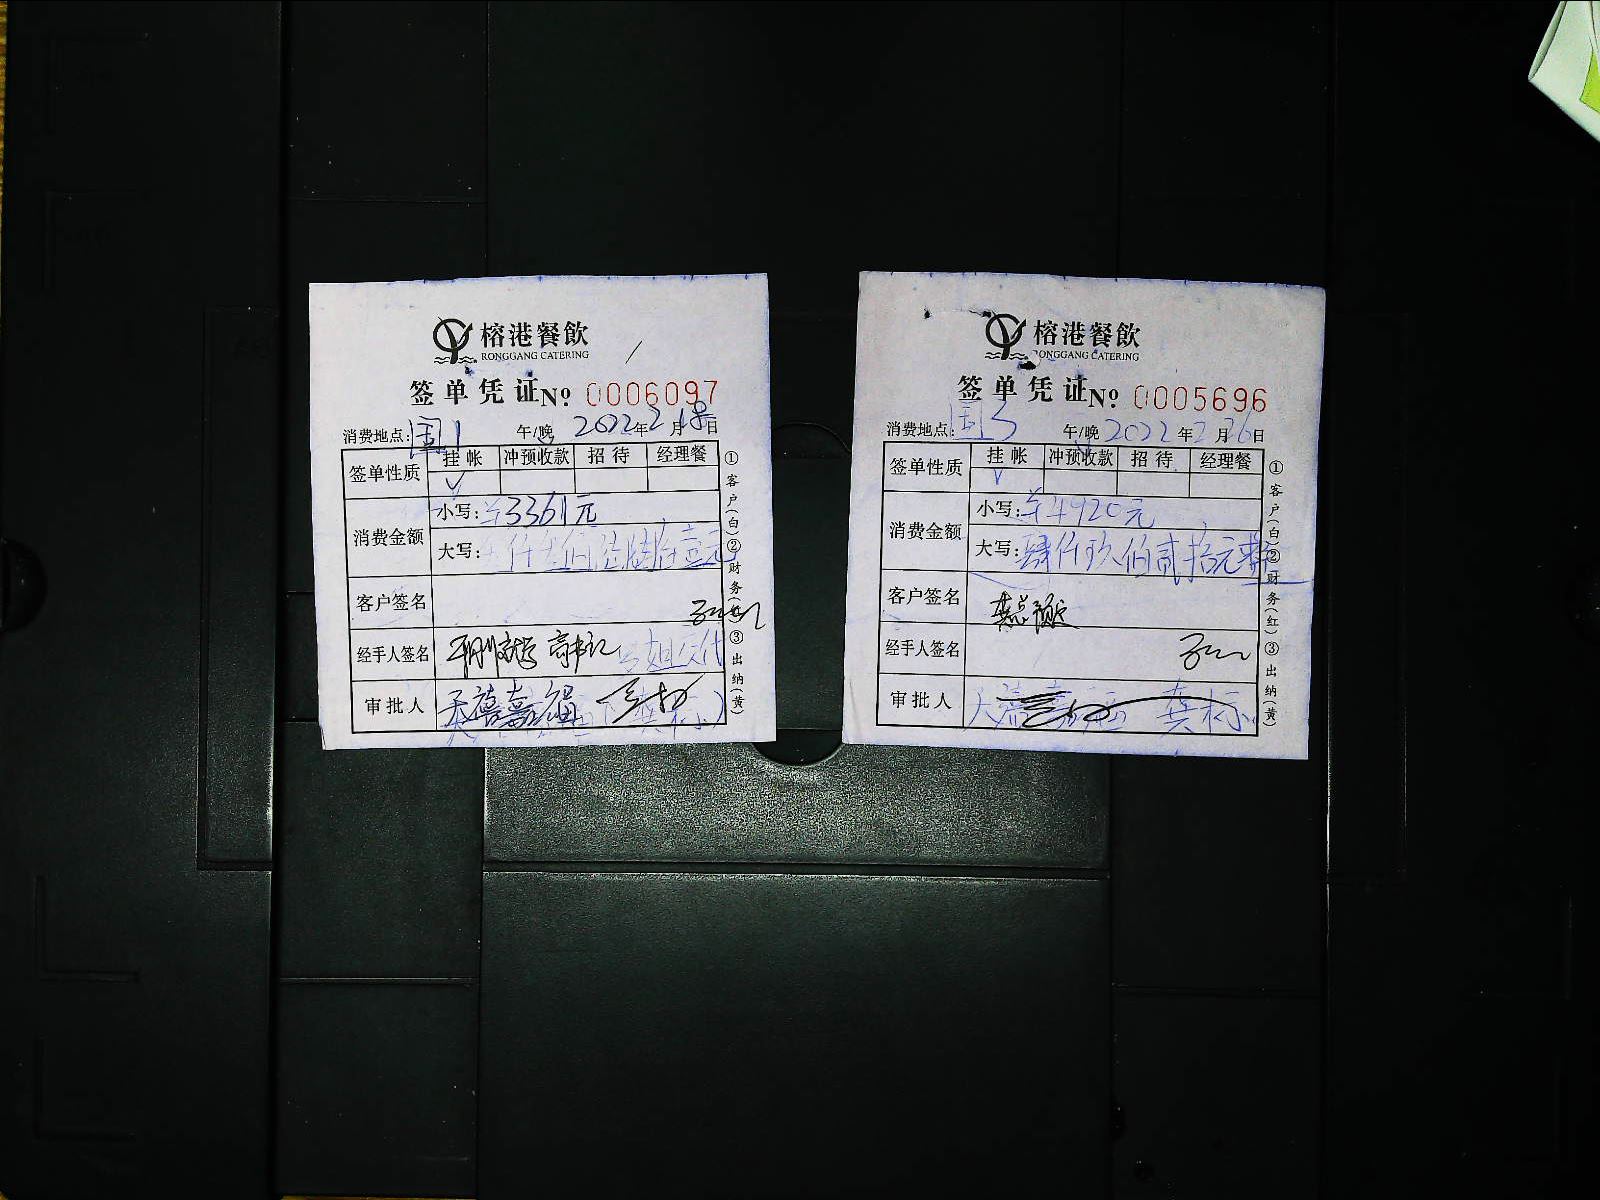 榕港餐飲
RONGGANG CATERING
签单凭证 № 0006097
消费地点: 国1 午/晚 2022年2月18日
签单性质 挂帐 冲预收款 招待 经理餐
√
消费金额 小写: ¥3361元
大写: 叁仟叁佰陆拾壹元
客户签名
经手人签名
审批人 天禧嘉福
①客户(白)②财务(红)③出纳(黄)
榕港餐飲
RONGGANG CATERING
签单凭证 № 0005696
消费地点: 国3 午/晚 2022年2月26日
签单性质 挂帐 冲预收款 招待 经理餐
√
消费金额 小写: ¥4920元
大写: 肆仟玖佰贰拾元整
客户签名
经手人签名
审批人 天禧嘉福 龚标
①客户(白)②财务(红)③出纳(黄)